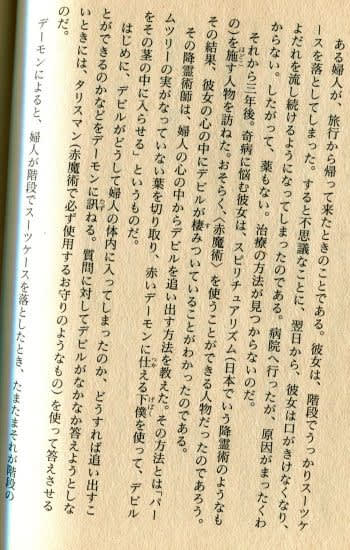 ある婦人が、旅行から帰って来たときのことである。彼女は、階段でうっかりスーツケ
ースを落としてしまった。すると不思議なことに、翌日から、彼女は口がきけなくなり、
よだれを流し続けるようになってしまったのである。病院へ行ったが、原因がまったくわ
からない。したがって、薬もない。治療の方法が見つからないのだ。
それから三年後。奇病に悩む彼女は、スピリチュアリズム(日本でいう降霊術のようなも
の)を施す人物を訪ねた。おそらく、〈赤魔術〉を使うことができる人物だったのであろう。
その結果、彼女の心の中にデビルが棲みついていることがわかったのである。
その降霊術師は、婦人の心の中からデビルを追い出す方法を教えた。その方法とは「パー
ムツリーの実がなっていない葉を切り取り、赤いデーモンに仕える下僕を使って、デビル
をその茎の中に入らせる」というものだ。
はじめに、デビルがどうして婦人の体内に入ってしまったのか、どうすれば追い出すこ
とができるのかなどをデーモンに訊ねる。質問に対してデビルがなかなか答えようとしな
いときには、タリスマン(赤魔術で必ず使用するお守りのようなもの)を使って答えさせる
のだ。
デーモンによると、婦人が階段でスーツケースを落としたとき、たまたまそれが階段の